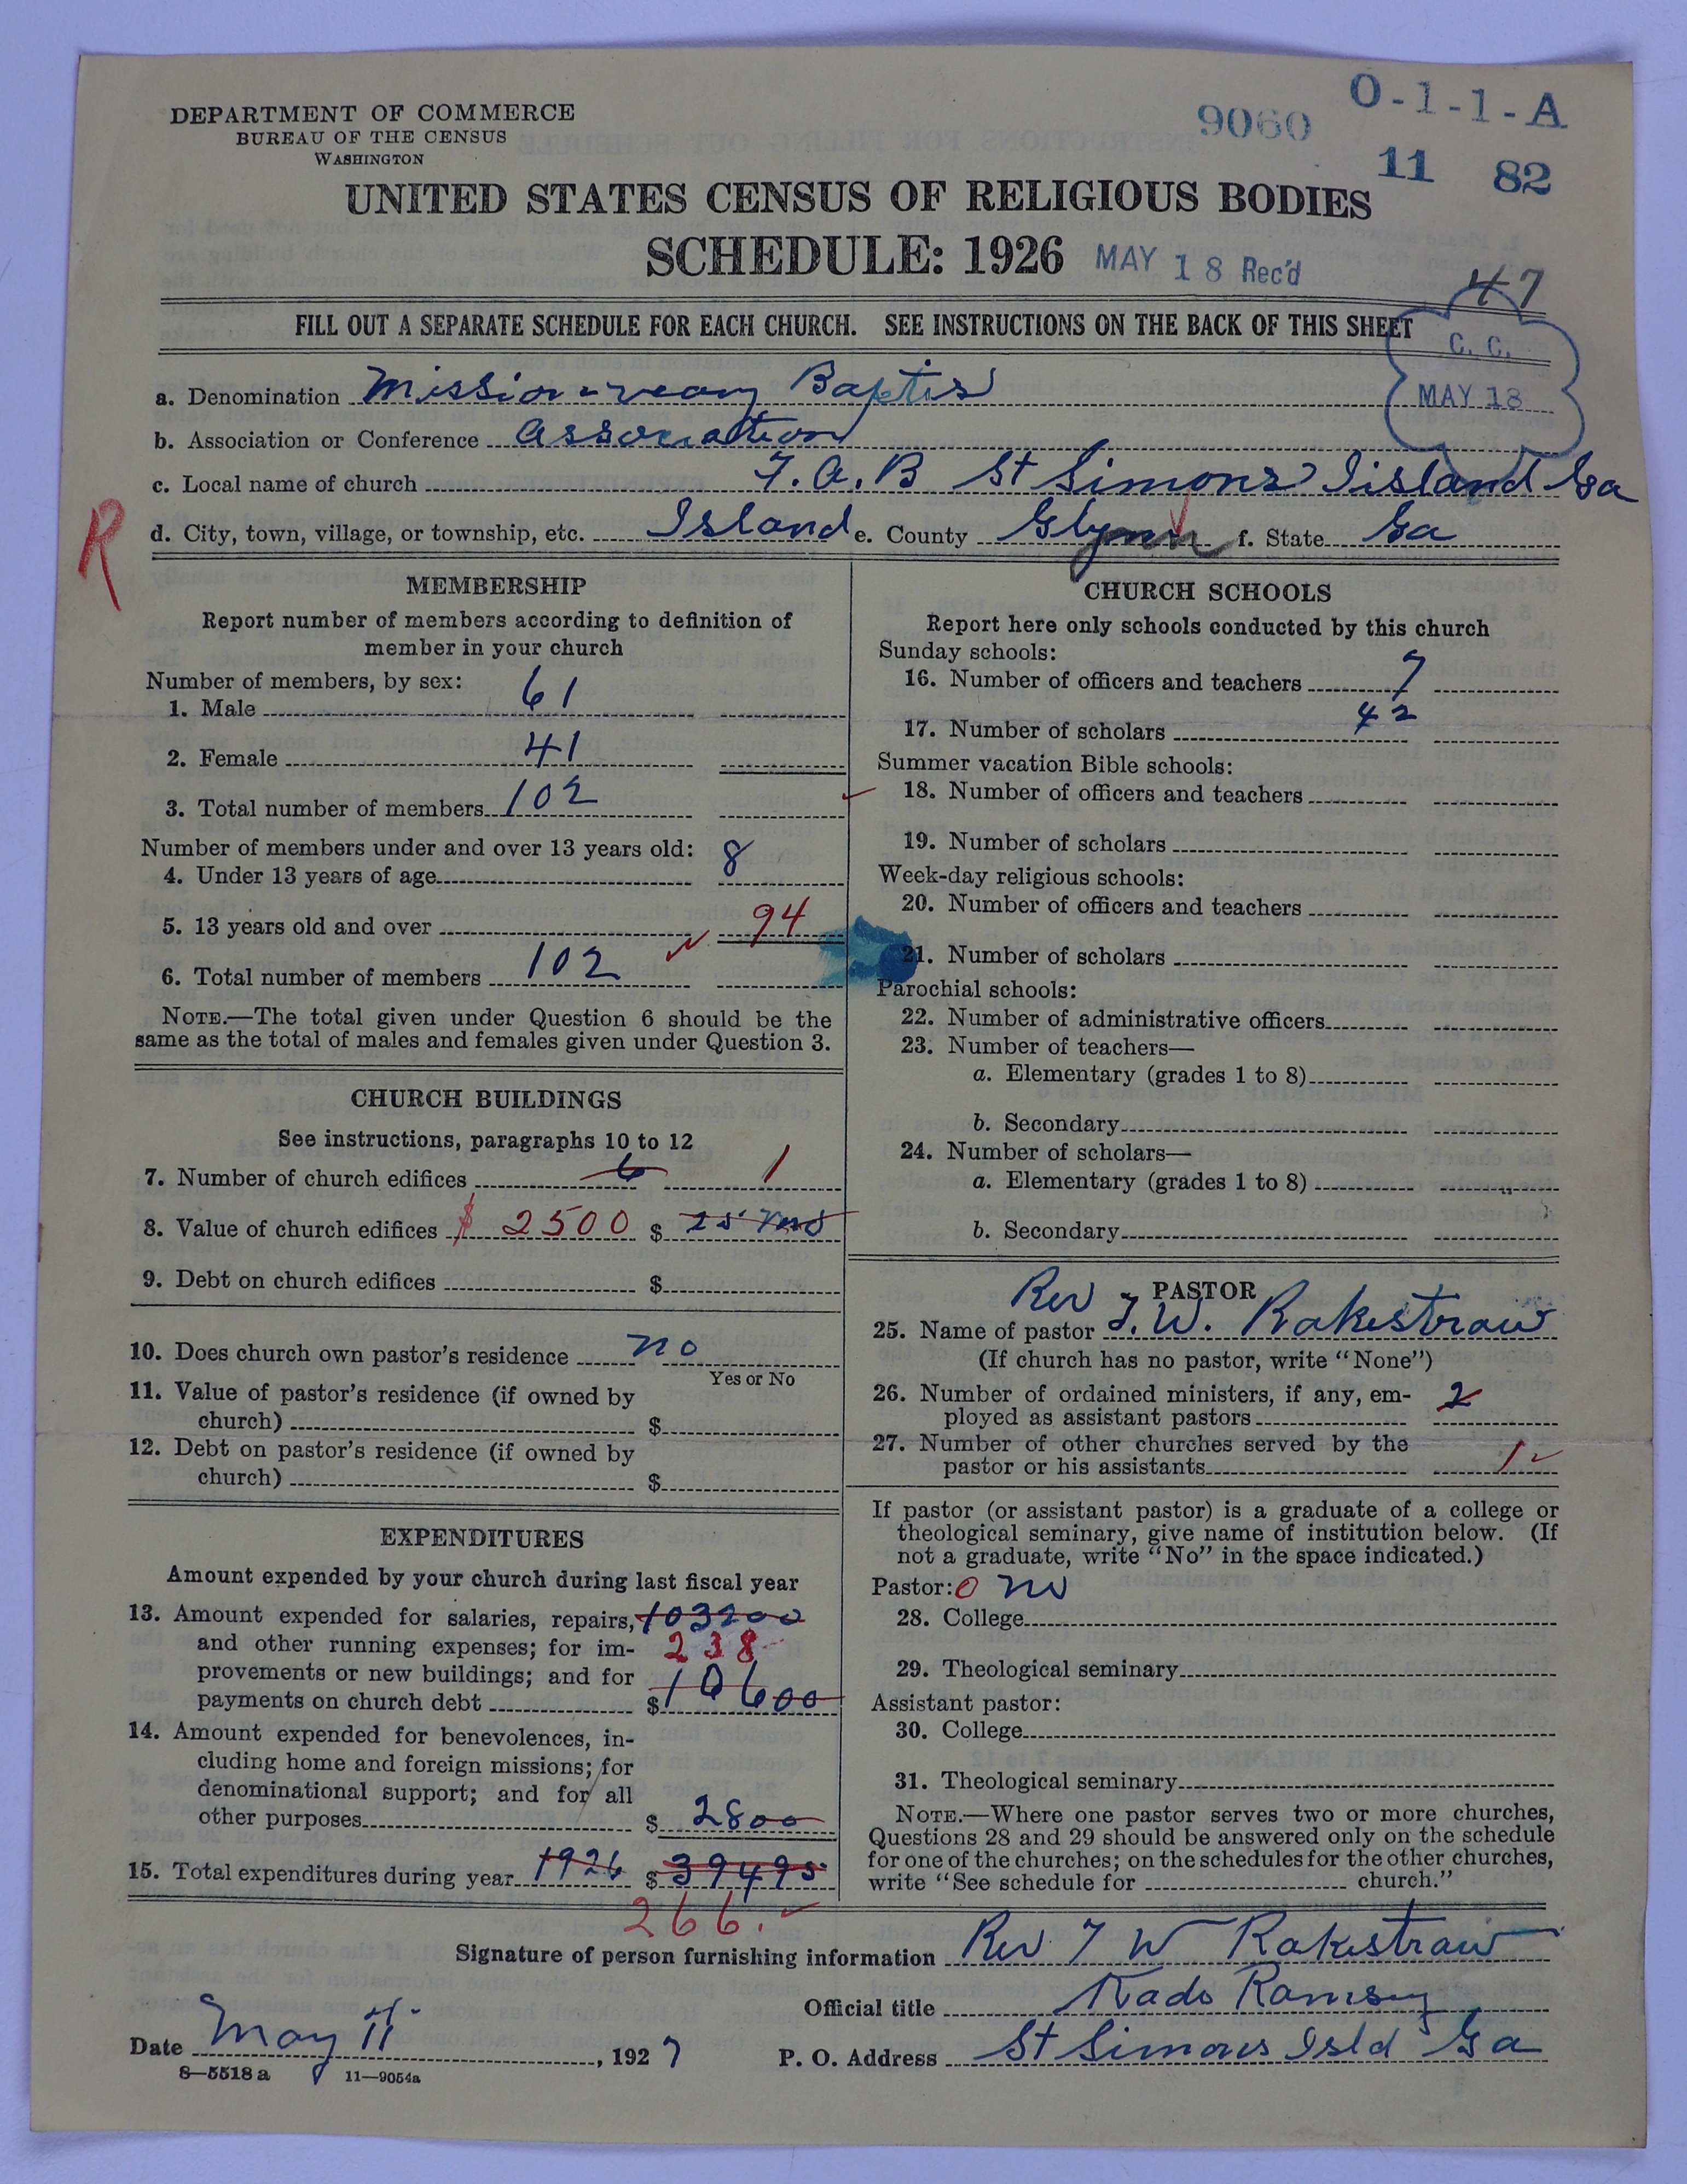 DEPARTMENT OF COMMERCE
BUREAU OF THE CENSUS
WASHINGTON
9060
O-1-1-A
11 82
UNITED STATES CENSUS OF RELIGIOUS BODIES
SCHEDULE: 1926 MAY 18 Rec'd
47
FILL OUT A SEPARATE SCHEDULE FOR EACH CHURCH. SEE INSTRUCTIONS ON THE BACK OF THIS SHEET
C. C.
MAY 18
a. Denomination Mission-reary Baptis
b. Association or Conference Association
c. Local name of church F. A. B St Simons Iisland Ga
R
d. City, town, village, or township, etc. Island e. County Glynn f. State Ga
MEMBERSHIP
Report number of members according to definition of
member in your church
Number of members, by sex:
1. Male 61
2. Female 41
3. Total number of members 102
Number of members under and over 13 years old:
4. Under 13 years of age 8
5. 13 years old and over 94
6. Total number of members 102
NOTE.—The total given under Question 6 should be the
same as the total of males and females given under Question 3.
CHURCH BUILDINGS
See instructions, paragraphs 10 to 12
7. Number of church edifices 6 1
8. Value of church edifices $ 2500 $ 25
9. Debt on church edifices $
10. Does church own pastor's residence no
Yes or No
11. Value of pastor's residence (if owned by
church) $
12. Debt on pastor's residence (if owned by
church) $
EXPENDITURES
Amount expended by your church during last fiscal year
13. Amount expended for salaries, repairs, 103200
and other running expenses; for im- 238
provements or new buildings; and for
payments on church debt $10600
14. Amount expended for benevolences, in-
cluding home and foreign missions; for
denominational support; and for all
other purposes $ 2800
15. Total expenditures during year 1926 $ 39495
266.
CHURCH SCHOOLS
Report here only schools conducted by this church
Sunday schools:
16. Number of officers and teachers 7
17. Number of scholars 42
Summer vacation Bible schools:
18. Number of officers and teachers
19. Number of scholars
Week-day religious schools:
20. Number of officers and teachers
21. Number of scholars
Parochial schools:
22. Number of administrative officers
23. Number of teachers—
a. Elementary (grades 1 to 8)
b. Secondary
24. Number of scholars—
a. Elementary (grades 1 to 8)
b. Secondary
PASTOR
25. Name of pastor Rev F. W. Rakestraw
(If church has no pastor, write "None")
26. Number of ordained ministers, if any, em-
ployed as assistant pastors 2
27. Number of other churches served by the
pastor or his assistants 1
If pastor (or assistant pastor) is a graduate of a college or
theological seminary, give name of institution below. (If
not a graduate, write "No" in the space indicated.)
Pastor: 0 no
28. College
29. Theological seminary
Assistant pastor:
30. College
31. Theological seminary
NOTE.—Where one pastor serves two or more churches,
Questions 28 and 29 should be answered only on the schedule
for one of the churches; on the schedules for the other churches,
write "See schedule for church."
Signature of person furnishing information Rev. F W Rakestraw
Official title Kado Ramsey
Date May 11, 1927 P. O. Address St Simons Isld Ga
8—5518 a 11—9054a